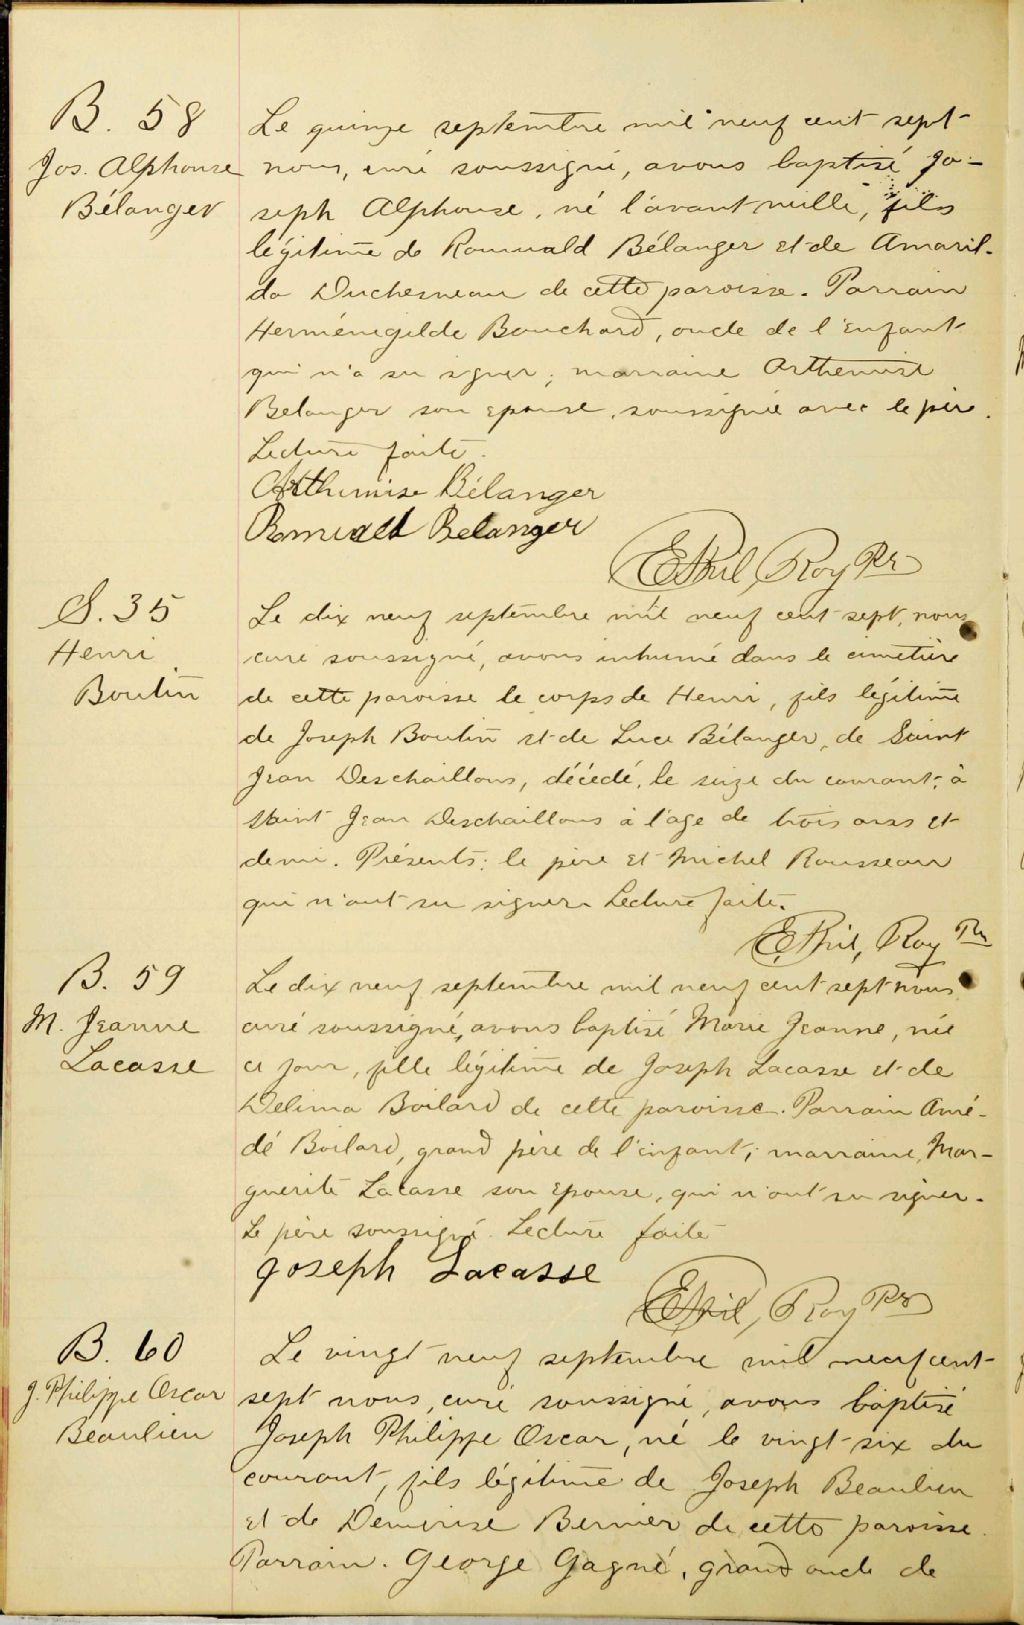 B. 58
Jos. Alphonse
Bélanger
Le quinze septembre mil neuf cent sept
nous, curé soussigné, avons baptisé Jo-
seph Alphonse, né l'avant veille, fils
légitime de Romuald Bélanger et de Amaril-
da Duchesneau de cette paroisse. Parrain
Herménégilde Bouchard, oncle de l'enfant
qui n'a su signer; marraine Arthemise
Belanger son épouse, soussignée avec le père.
Lecture faite.
Arthimise Bélanger
Romuald Belanger
E. Phil, Roy Ptr
S. 35
Henri
Boutin
Le dix neuf septembre mil neuf cent sept, nous
curé soussigné, avons inhumé dans le cimetière
de cette paroisse le corps de Henri, fils légitime
de Joseph Boutin et de Luce Bélanger, de Saint
Jean Deschaillons, décédé, le seize du courant, à
Saint Jean Deschaillons à l'age de trois ans et
demi. Présents: le père et Michel Rousseau
qui n'ont su signer. Lecture faite.
E. Phil, Roy Ptr
B. 59
M. Jeanne
Lacasse
Le dix neuf septembre mil neuf cent sept nous
curé soussigné, avons baptisé Marie Jeanne, née
ce jour, fille légitime de Joseph Lacasse et de
Delima Boilard de cette paroisse. Parrain Amé-
dé Boilard, grand père de l'enfant; marraine, Mar-
guerite Lacasse son épouse, qui n'ont su signer.
Le père soussigné. Lecture faite
Joseph Lacasse
E. Phil, Roy Ptr
B. 60
J. Philippe Oscar
Beaulieu
Le vingt neuf septembre mil neuf cent
sept nous, curé soussigné, avons baptisé
Joseph Philippe Oscar, né le vingt-six du
courant, fils légitime de Joseph Beaulieu
et de Demerise Bernier de cette paroisse.
Parrain. George Gagné, grand oncle de